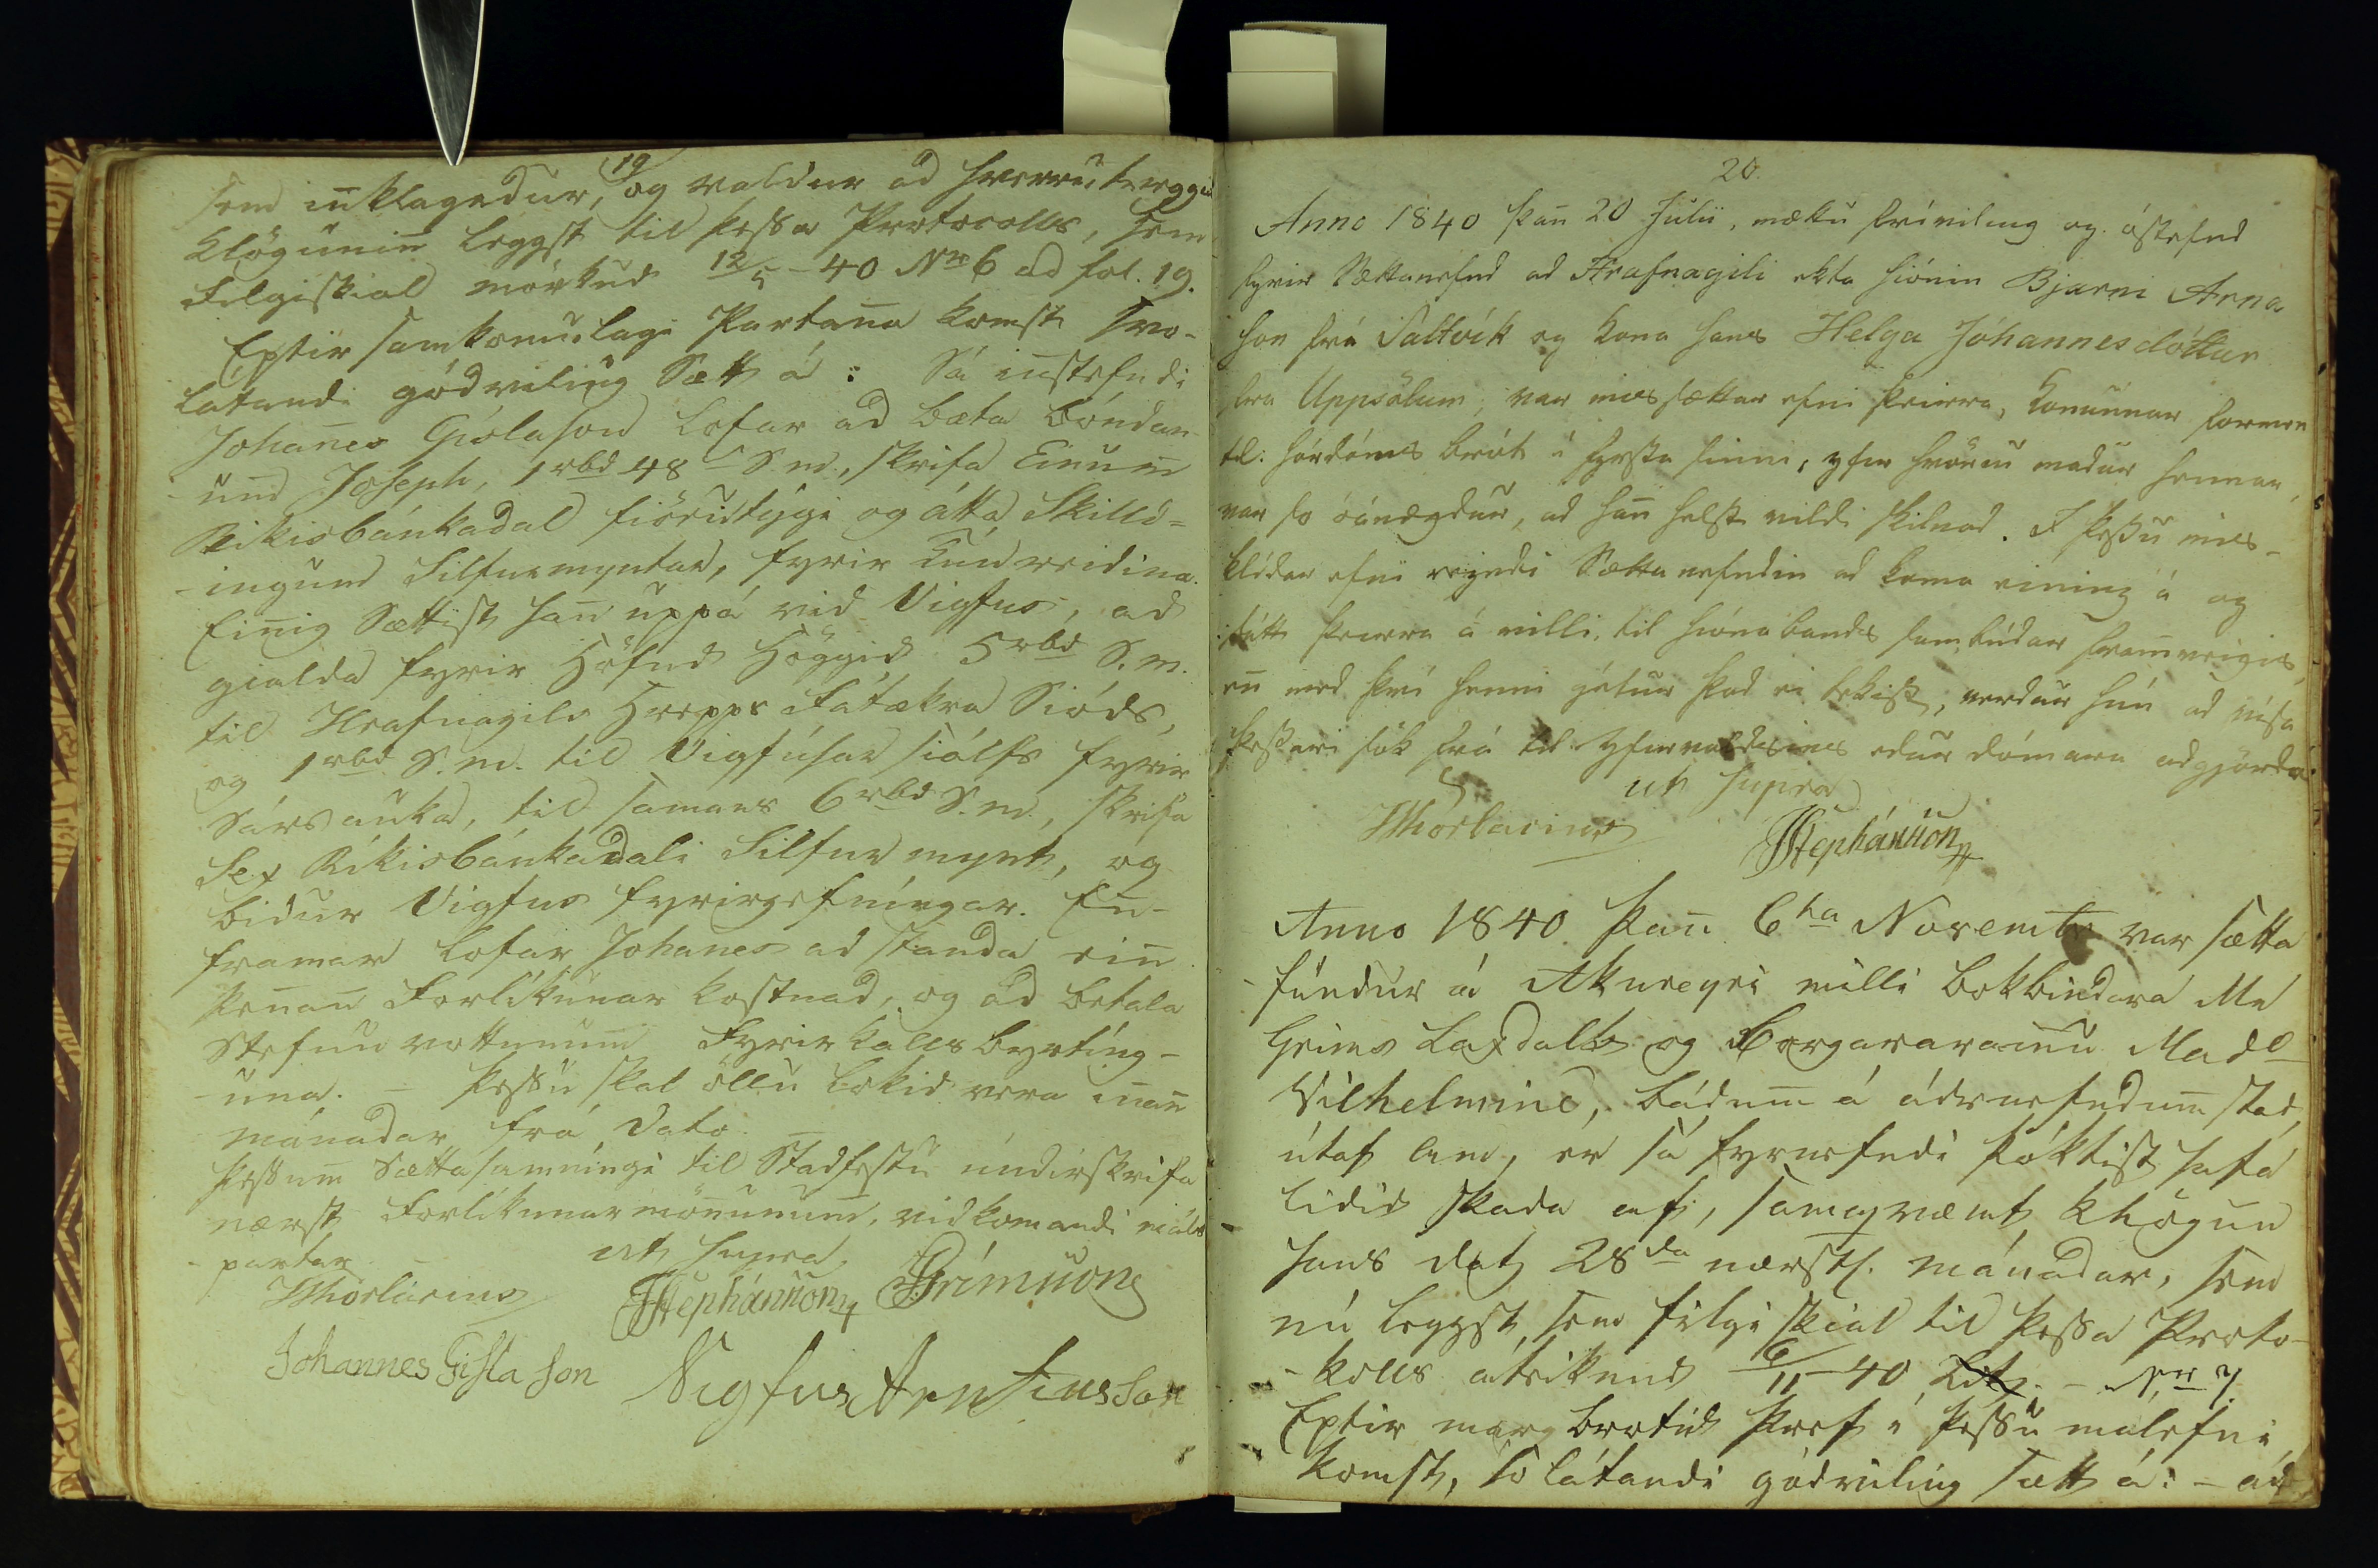 19
sem innklagadur, og valdur ad hverriutveggiu
Klögunin leggst til þessa Protocolls, sem
Filgiskial mörkud 12/5 - 40 No 6 ad fol. 19.
Eptir samkomulagi Partana komst svo-
látandi gódviliug Sætt á: Sá innstefndi
Johannes Gíslason lofar ad bæta bóndan-
um Joseph, 1rbd 48 s S.m., skrifa Einum
Ríkisbánkadal fiörutýgi og átta Skilld-
-ingum Silfurmyntar, fyrir
Einnig Sættist hann uppá vid Vigfus, ad
gialda fyrir Höfud Höggid 5rbd S.m.
til Hrafnagils Hrepps Fátækra Sióds,
og 1rbd S.m. til Vigfúsar siálfs fyrir
Sársauka, til samans 6rbd S.m., skrifa
Sex Ríkisbánkadali Silfur mynt, og
bidur Vigfus fyrirgefníngar. Enn-
framar lofar Johannes ad standa einn
þennan Forlíkunar kostnad, og ad betala
Stefnu vottunum Fyrirkalls byrtíng-
-una. - Þessu skal öllu lokid vera innan
mánadar frá Dato. -
Þessum Sættasamníngi til Stadfestu undirskrifa
nærst Forlíkunarmönnunum, vidkomandi máls
-partar
ut supra
Thorlacius JStephánsson Grímsson
Johannes Gisla son Vigfus son
20.
Anno 1840 þann 20 Julii, mættu fríviliug og óstefnd
fyrir Sættanefnd ad Hrafnagili ekta hiónin Bjarni Arna
son frá Saltvík og kona hans Helga Jóhannesdóttur
frá Uppsölum; var missættar efni þeirra, konunnar
til hórdóms brot í fyrsta sinni, yfir hvöriu madur hennar,
var so óánægdur, ad hann helst vildi skilnad. I þessu mis-
klídar efni reyndi Sættanefndin ad koma eining á og
sátt þeirra á milli, til hiónabands sambúdar framveigis,
en med því henni getur þad ei tekist, verdur hún ad vísa
þessari sök frá til Yfirvaldsins edur dómara adgjörda.
ut supra
Thorlacius JStephánsson
Anno 1840 þann 6ta Novembr var sætta
-fundur á Akureyri milli bókbindara Mr
Gríms Laxdals og Borgararainnu Made
Vilhelmine, bádum á ádurnefndum stad,
útaf , er sá fyrnefndi þóktist hafa
lidid skada af, samqvæmt Klögun
hans dat 28da nærstl. mánadar, sem
nú leggst, sem filgiskial til þessa Proto-
-kolls áteiknud 6/11 - 40 - Nr 7
Eptir margbrotid þref í þessu málefni
komst, so látandi gódviliug sætt á: - ad